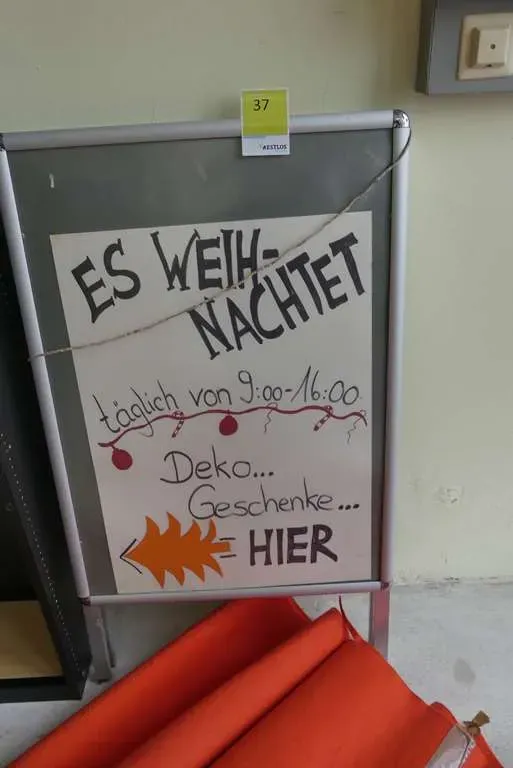 37
RESTLOS
ES WEIH-
NACHTET
täglich von 9:00-16:00
Deko...
Geschenke...
HIER